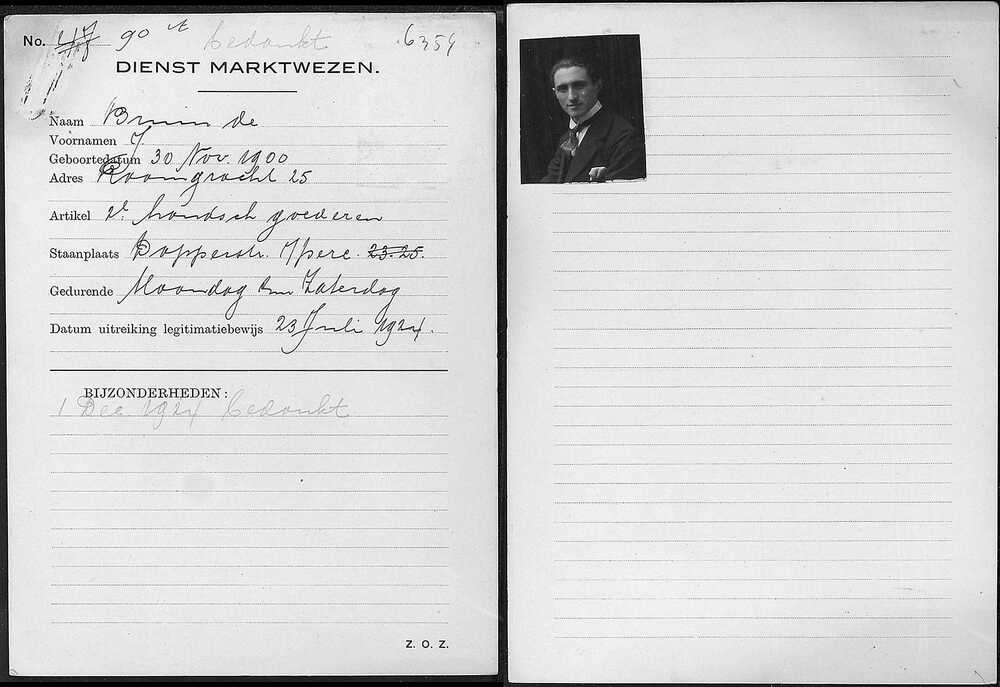 No. 90 bedankt 6359
DIENST MARKTWEZEN.
Naam Bruin de
Voornamen J.
Geboortedatum 30 Nov. 1900
Adres Roomgracht 25
Artikel 2e handsch goederen
Staanplaats Dapperstr. Ypere. 23-25.
Gedurende Maandag t/m Zaterdag
Datum uitreiking legitimatiebewijs 23 Juli 1924.
BIJZONDERHEDEN:
1 Dec 1924 bedankt
Z. O. Z.